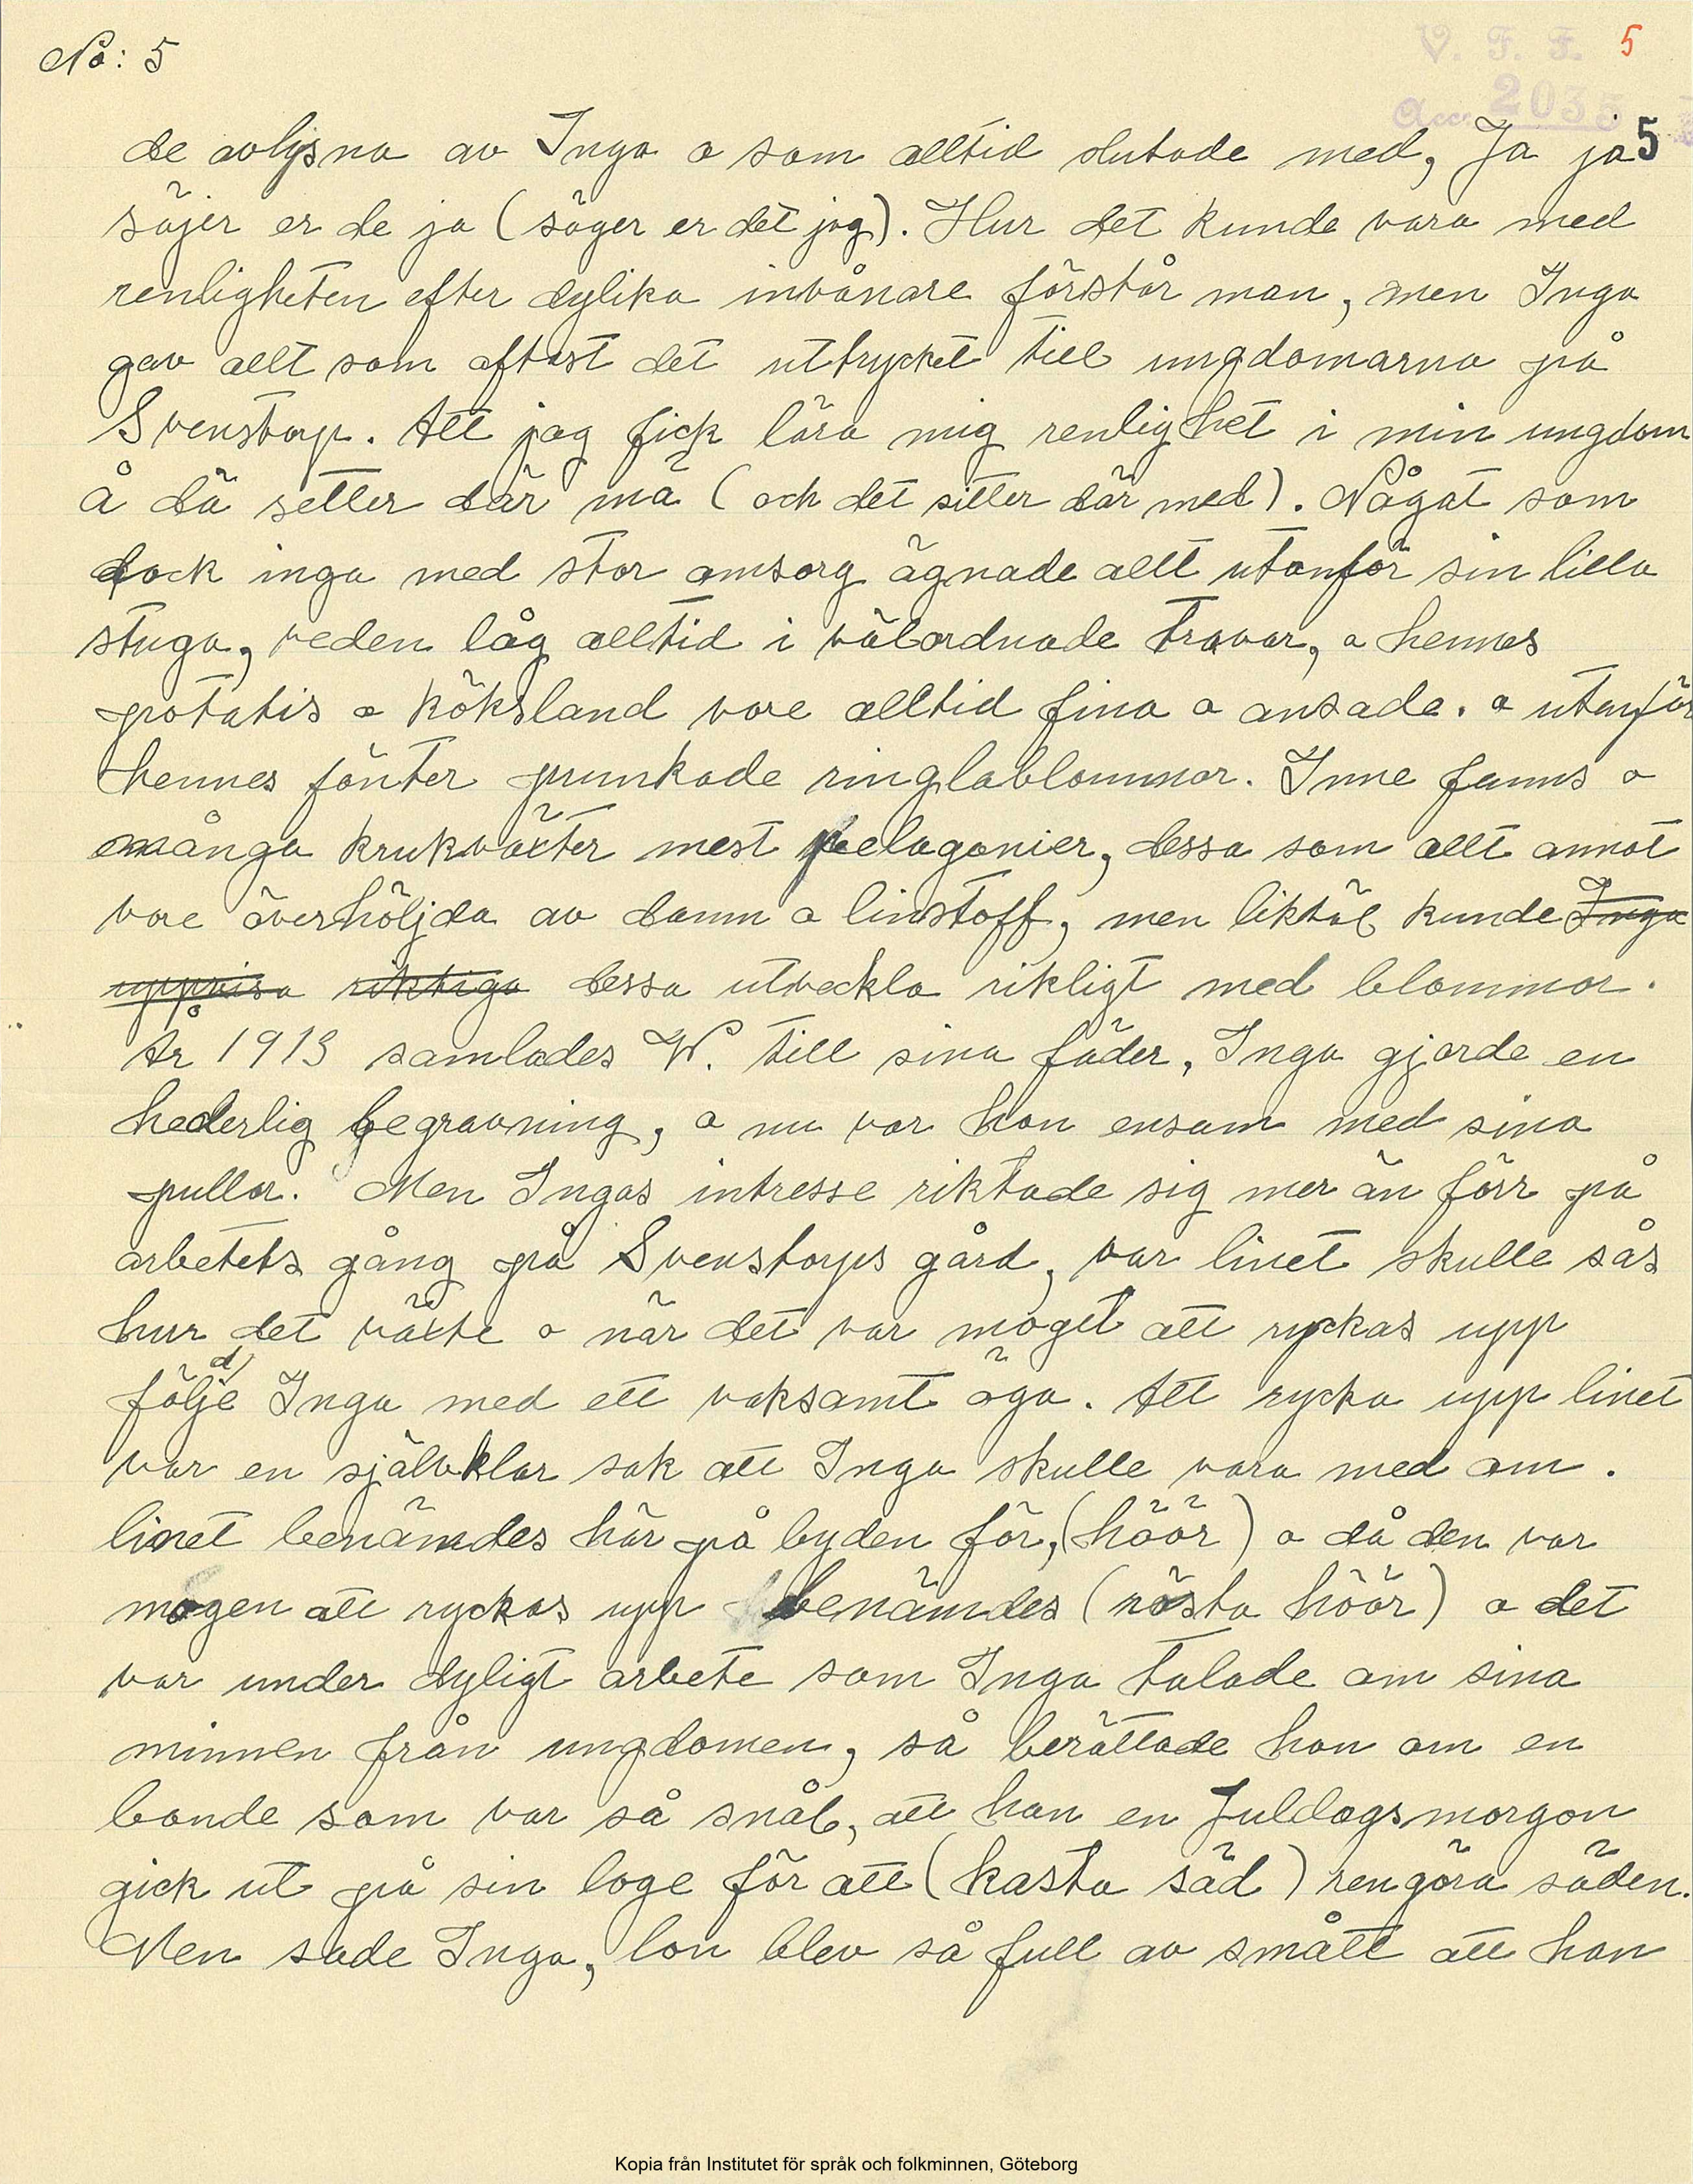 No: 5
V. F. F. 5
Acc. 2035
5
de avlysna av Inga o som alltid slutade med, Ja ja
säjer er de ja (säger er det jag). Hur det kunde vara med
renligheten efter dylika invånare förstår man, men Inga
gav allt som oftast det uttrycket till ungdomarna på
Svenstorp. Att jag fick lära mig renlighet i min ungdom
å dä setter där mä (och det sitter där med). Något som
dock inga med stor omsorg ägnade allt utanför sin lilla
stuga, veden låg alltid i välordnade travar, o hennes
potatis o köksland vore alltid fina o ansade. o utanför
hennes fönter prunkade ringlablommor. Inne fanns o
många krukväxter mest pelagonier, dessa som allt annat
vore överhöljda av damm o linstoff, men liktäl kunde Inga
uppvisa riktiga dessa utveckla rikligt med blommor.
År 1913 samlades W. till sina fäder, Inga gjorde en
hederlig begravning, o nu var hon ensam med sina
pullor. Men Ingas intresse riktade sig mer än förr på
arbetets gång på Svenstorps gård, var linet skulle sås
hur det växte o när det var moget att ryckas upp
följde Inga med ett vaksamt öga. Att rycka upp linet
var en självklar sak att Inga skulle vara med om.
linet benämdes här på byden för, (höör) o då den var
mogen att ryckas upp benämdes (rösta höör) o det
var under dyligt arbete som Inga talade om sina
minnen från ungdomen, så berättade hon om en
bonde som var så snål, att han en Juldagsmorgon
gick ut på sin loge för att (kasta säd) rengöra säden.
Men sade Inga, lon blev så full av smått att han
Kopia från Institutet för språk och folkminnen, Göteborg